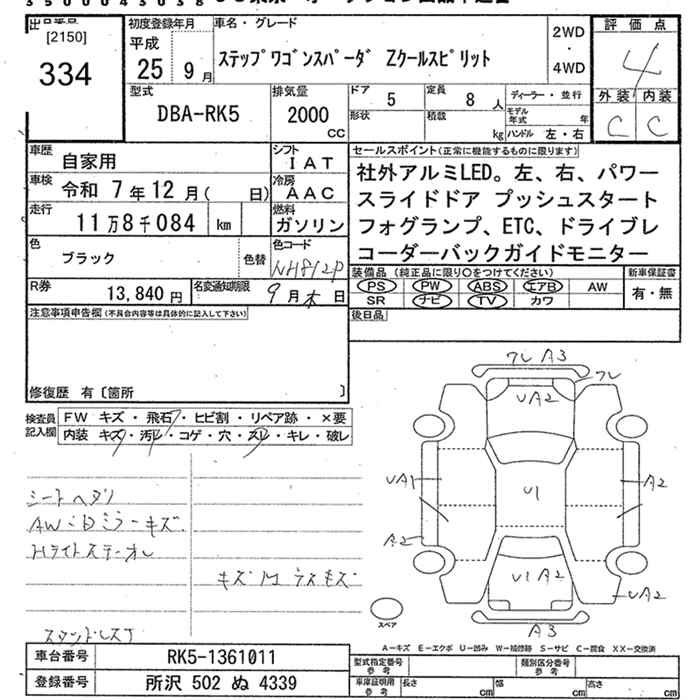 35000 43038
出品番号
[2150]
334
初度登録年月
平成
25 9月
車名・グレード
ステップワゴンスパーダ Zクールスピリット
2WD
・
4WD
評価点
4
外装 内装
C C
型式
DBA-RK5
排気量
2000
CC
ドア 5
定員 8 人
形状
積載 kg
ディーラー・並行
モデル年式 年
ハンドル 左・右
車歴 自家用
シフト IAT
車検 令和 7年12月( 日)
冷房 AAC
走行 11万8千084 km
燃料 ガソリン
色 ブラック
色替
色コード NH812P
R券 13,840円
名変通知期限 9月末日
セールスポイント(正常に機能するものに限ります)
社外アルミLED。左、右、パワー
スライドドア プッシュスタート
フォグランプ、ETC、ドライブレ
コーダーバックガイドモニター
装備品 (純正品に限り○をつけてください)
新車保証書
PS PW ABS エアB AW
有・無
SR ナビ TV カワ
後日品
注意事項申告欄(不具合内容等は具体的に記入して下さい)
修復歴 有〔箇所 〕
検査員記入欄
FW キズ・飛石・ヒビ割・リペア跡・×要
内装 キズ・汚レ・コゲ・穴・スレ・キレ・破レ
シートヘタリ
AW
ミラーキズ
Hライト
キズ
フレ A3
フレ
UA2
UA1
U1
A2
A2
U1 A2
UA2
A3
スペア
A-キズ E-エクボ U-凹み W-補修跡 S-サビ C-腐食 XX-交換済
車台番号 RK5-1361011
登録番号 所沢 502 ぬ 4339
型式指定番号
参考
類別区分番号
参考
車庫証明用
参考
長さ cm
幅 cm
高さ cm